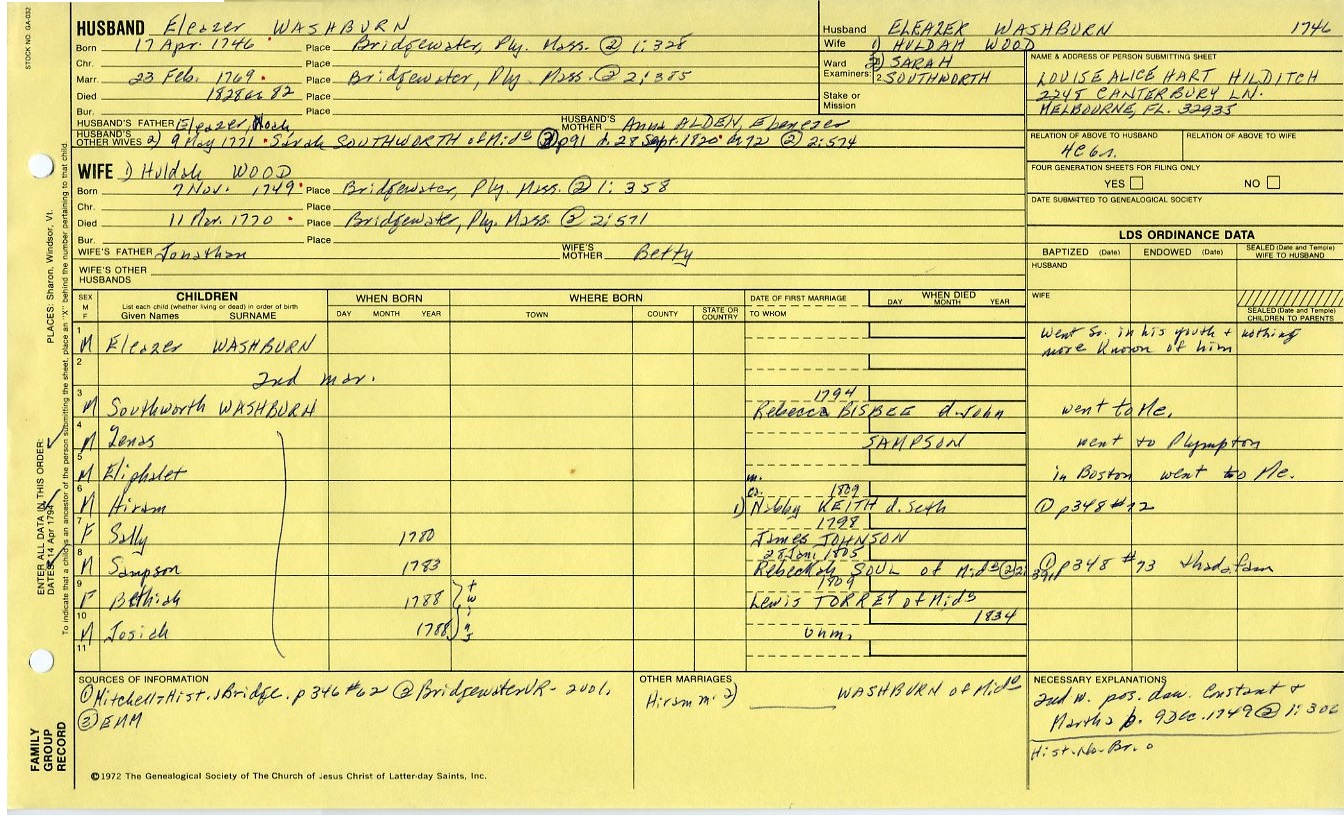 STOCK NO. GA-032
HUSBAND Eleazer WASHBURN
Born 17 Apr. 1746 Place Bridgewater, Ply. Mass. ② 1:328
Chr. Place
Marr. 23 Feb. 1769 Place Bridgewater, Ply. Mass. ② 2:385
Died 1828 or 82 Place
Bur. Place
HUSBAND'S FATHER Eleazer, Noah HUSBAND'S MOTHER Anna ALDEN, Ebenezer
HUSBAND'S OTHER WIVES 2) 9 May 1771 Sarah SOUTHWORTH of Midᵒ ③ p91 d. 28 Sept. 1820 in 72 ② 2:574
Husband ELEAZER WASHBURN 1746
Wife 1) HULDAH WOOD
Ward 2) SARAH
Examiners: 2 SOUTHWORTH
Stake or Mission
NAME & ADDRESS OF PERSON SUBMITTING SHEET
LOUISE ALICE HART HILDITCH
2248 CANTERBURY LN.
MELBOURNE, FL. 32935
RELATION OF ABOVE TO HUSBAND RELATION OF ABOVE TO WIFE
4C6r.
FOUR GENERATION SHEETS FOR FILING ONLY
YES NO
DATE SUBMITTED TO GENEALOGICAL SOCIETY
WIFE 1) Huldah WOOD
Born 7 Nov. 1749 Place Bridgewater, Ply. Mass. ② 1:358
Chr. Place
Died 11 Mar. 1770 Place Bridgewater, Ply. Mass. ② 2:571
Bur. Place
WIFE'S FATHER Jonathan WIFE'S MOTHER Betty
WIFE'S OTHER HUSBANDS
LDS ORDINANCE DATA
BAPTIZED (Date) ENDOWED (Date) SEALED (Date and Temple) WIFE TO HUSBAND
HUSBAND
WIFE
SEALED (Date and Temple) CHILDREN TO PARENTS
SEX M F CHILDREN List each child (whether living or dead) in order of birth Given Names SURNAME
WHEN BORN DAY MONTH YEAR
WHERE BORN TOWN COUNTY STATE OR COUNTRY
DATE OF FIRST MARRIAGE TO WHOM
WHEN DIED DAY MONTH YEAR
1 M Eleazer WASHBURN went So. in his youth + nothing more known of him
2 2nd mar.
3 M Southworth WASHBURN 1794 Rebecca BISBEE d. John went to Me.
4 M Zenas SAMPSON went to Plympton
5 M Eliphalet m. in Boston went to Me.
6 M Hiram 1809 1) Nabby KEITH d. Seth ① p348 #72
7 F Sally 1780 1798 James JOHNSON
8 M Sampson 1783 28 Jan. 1805 Rebeckah SOUL of Midᵒ ② 2: 391 ① p348 #73 + had a fam
9 F Bethiah 1788 1809 Lewis TORREY of Midᵒ
twins
10 M Josiah 1788 unm. 1834
11
SOURCES OF INFORMATION
① Mitchell-Hist. Bridge. p346 #62 ② Bridgewater VR- 2 vol.
③ EMM
OTHER MARRIAGES
Hiram m. 2) WASHBURN of Midᵒ
NECESSARY EXPLANATIONS
2nd w. pos. dau. Constant +
Martha b. 9 Dec. 1749 ② 1:306
Hist. No. Br.
©1972 The Genealogical Society of The Church of Jesus Christ of Latter-day Saints, Inc.
FAMILY GROUP RECORD
ENTER ALL DATA IN THIS ORDER:
DATES: 14 Apr 1794
PLACES: Sharon, Windsor, Vt.
To indicate that a child is an ancestor of the person submitting the sheet, place an "X" behind the number pertaining to that child.